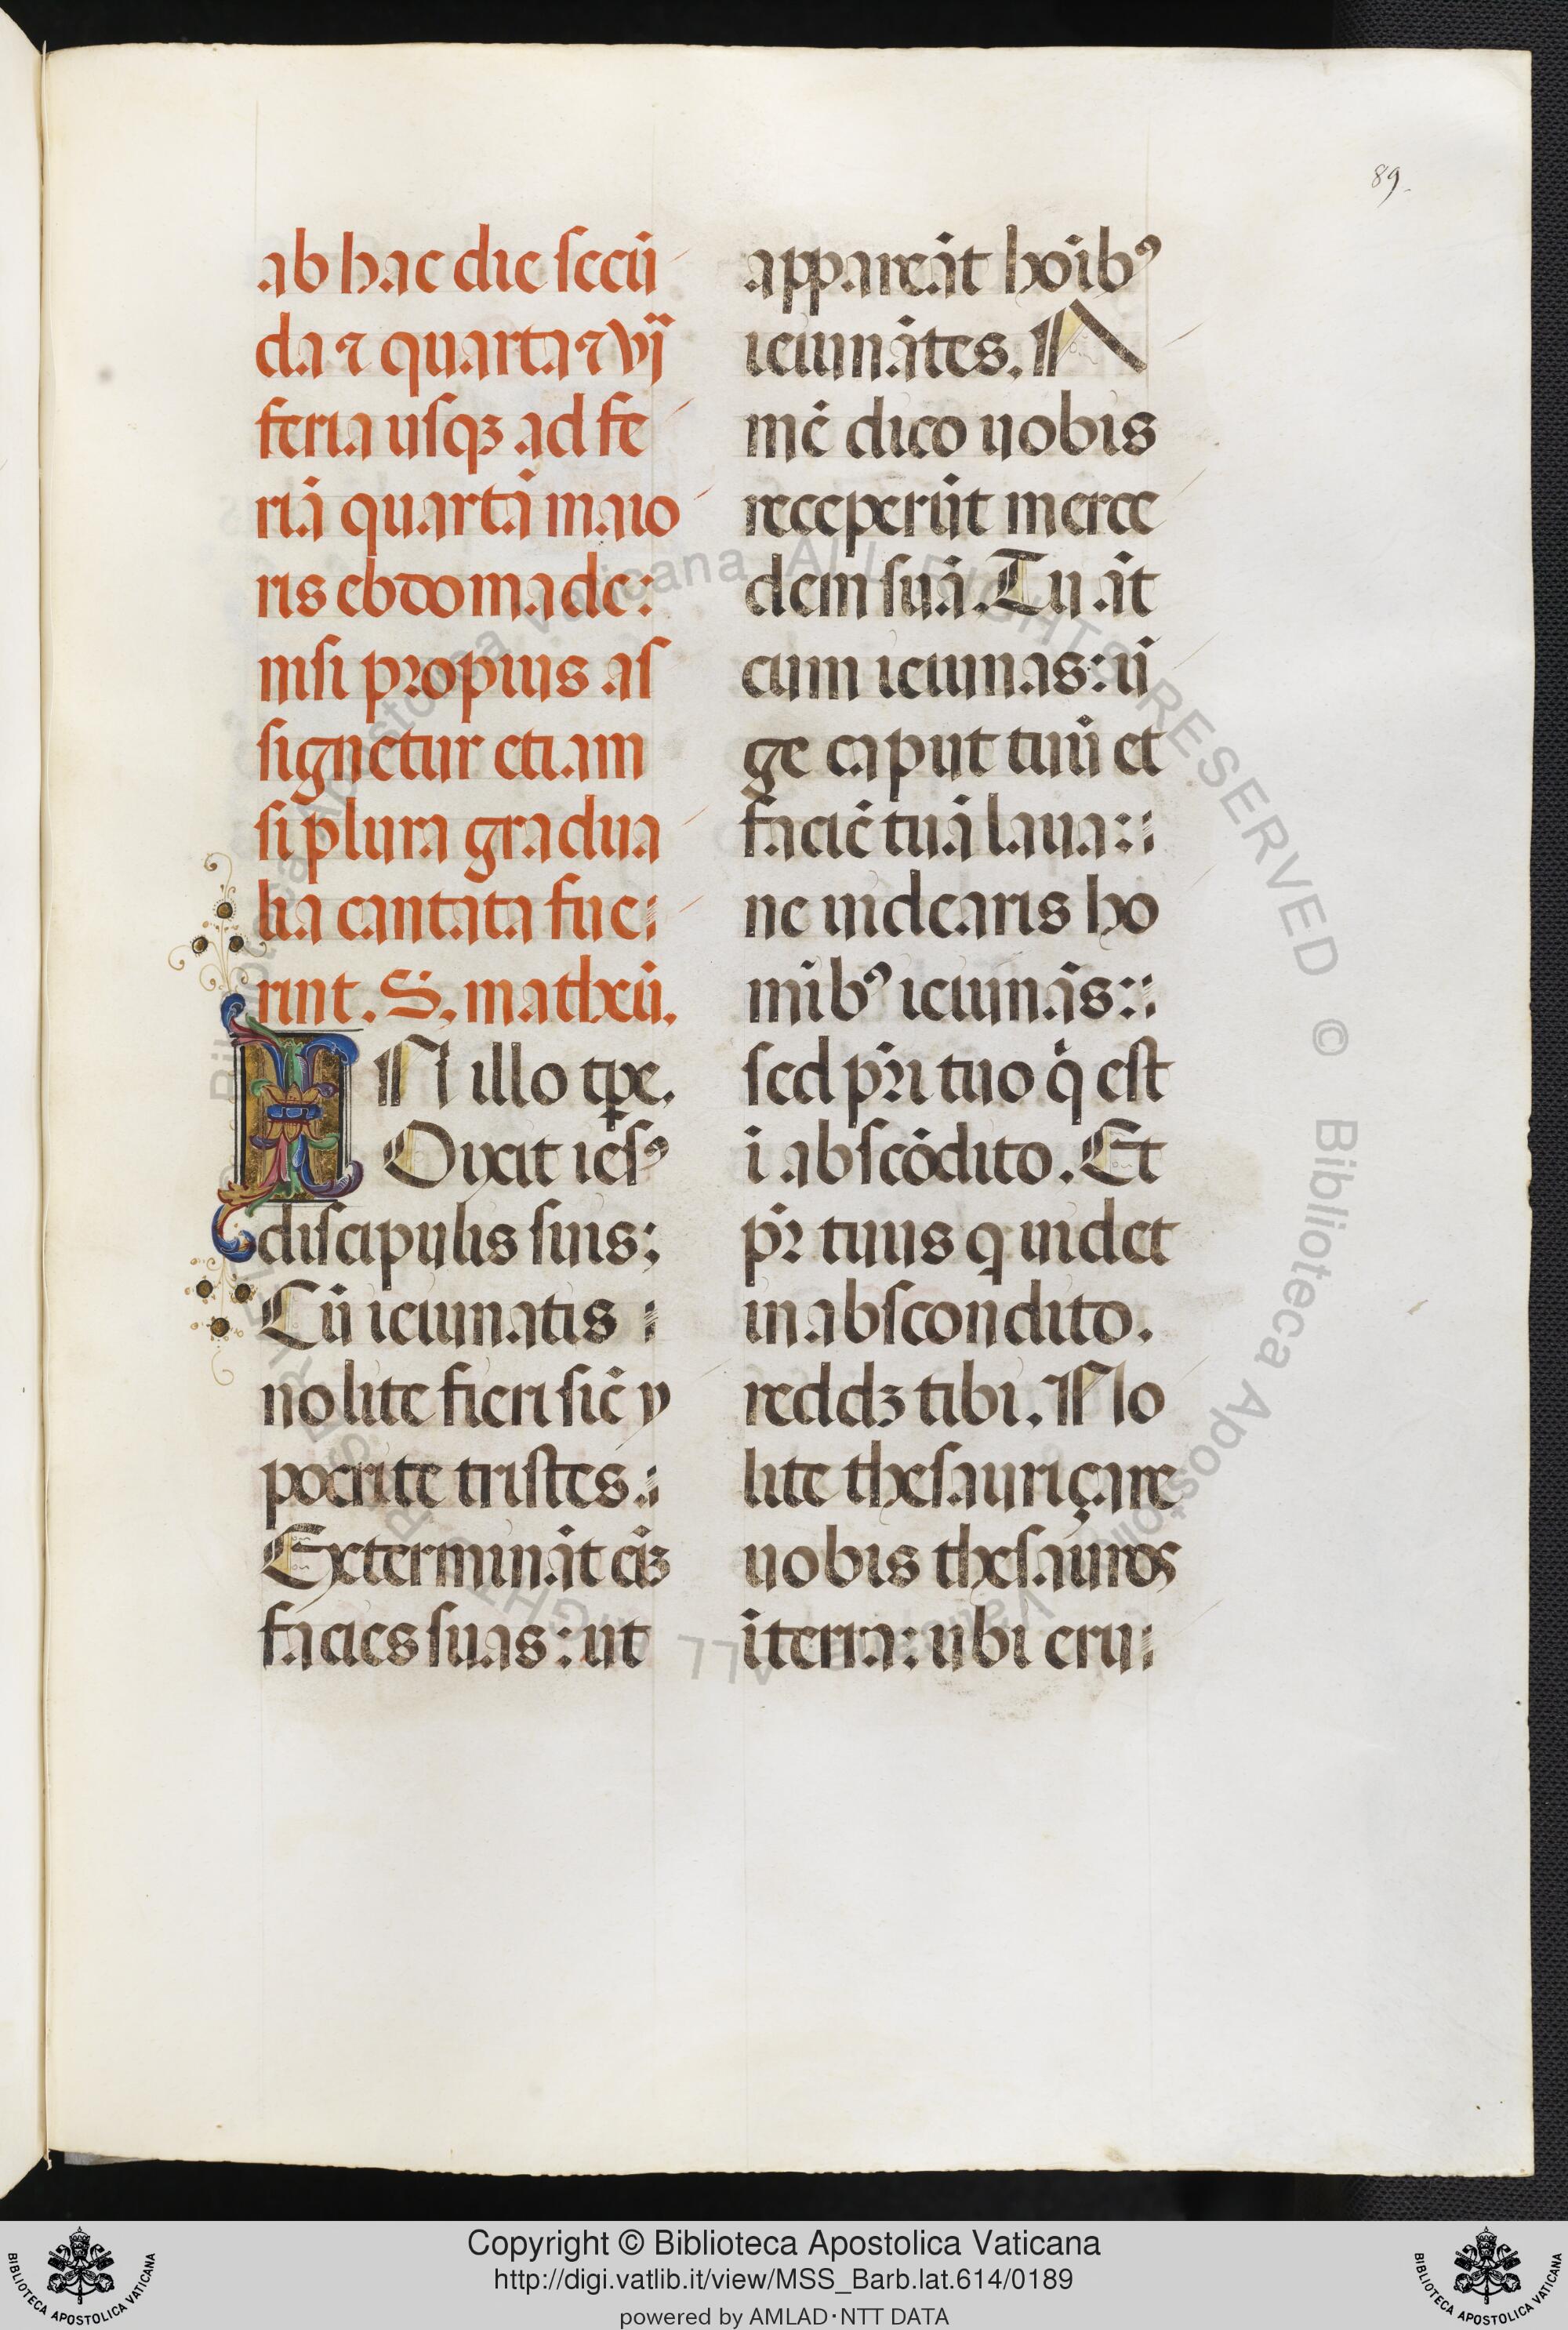 89.
ab hac die secū
da ⁊ quarta ⁊ vj
feria usqꝫ ad fe
riā quartā maio
ris ebdomade:
nisi propius as
signetur etiam
si plura gradua
lia cantata fue
rint. S. matheū.
IN illo tꝑe.
Dixit iesꝰ
discipulis suis;
Cū ieiunatis
nolite fieri sic̄ y
pocrite tristes.
Extermināt eīꝫ
facies suas: ut
appareāt hoībꝰ
ieiunātes. A
mē dico uobis
receperūt merce
dem suā. Tu āt
cum ieiunas: ū
ge caput tuū et
faciē tuā laua:
ne uidearis ho
mībꝰ ieiunās:
sed pr̄i tuo q̇ est
ī abscōdito. Et
pr̄ tuus q uidet
in abscondito.
reddꝫ tibi. No
lite thesauriçare
uobis thesauros
ī terra: ubi eru
Copyright © Biblioteca Apostolica Vaticana
http://digi.vatlib.it/view/MSS_Barb.lat.614/0189
powered by AMLAD·NTT DATA
BIBLIOTECA APOSTOLICA VATICANA
BIBLIOTECA APOSTOLICA VATICANA
© Biblioteca Apostolica Vaticana ALL RIGHTS RESERVED